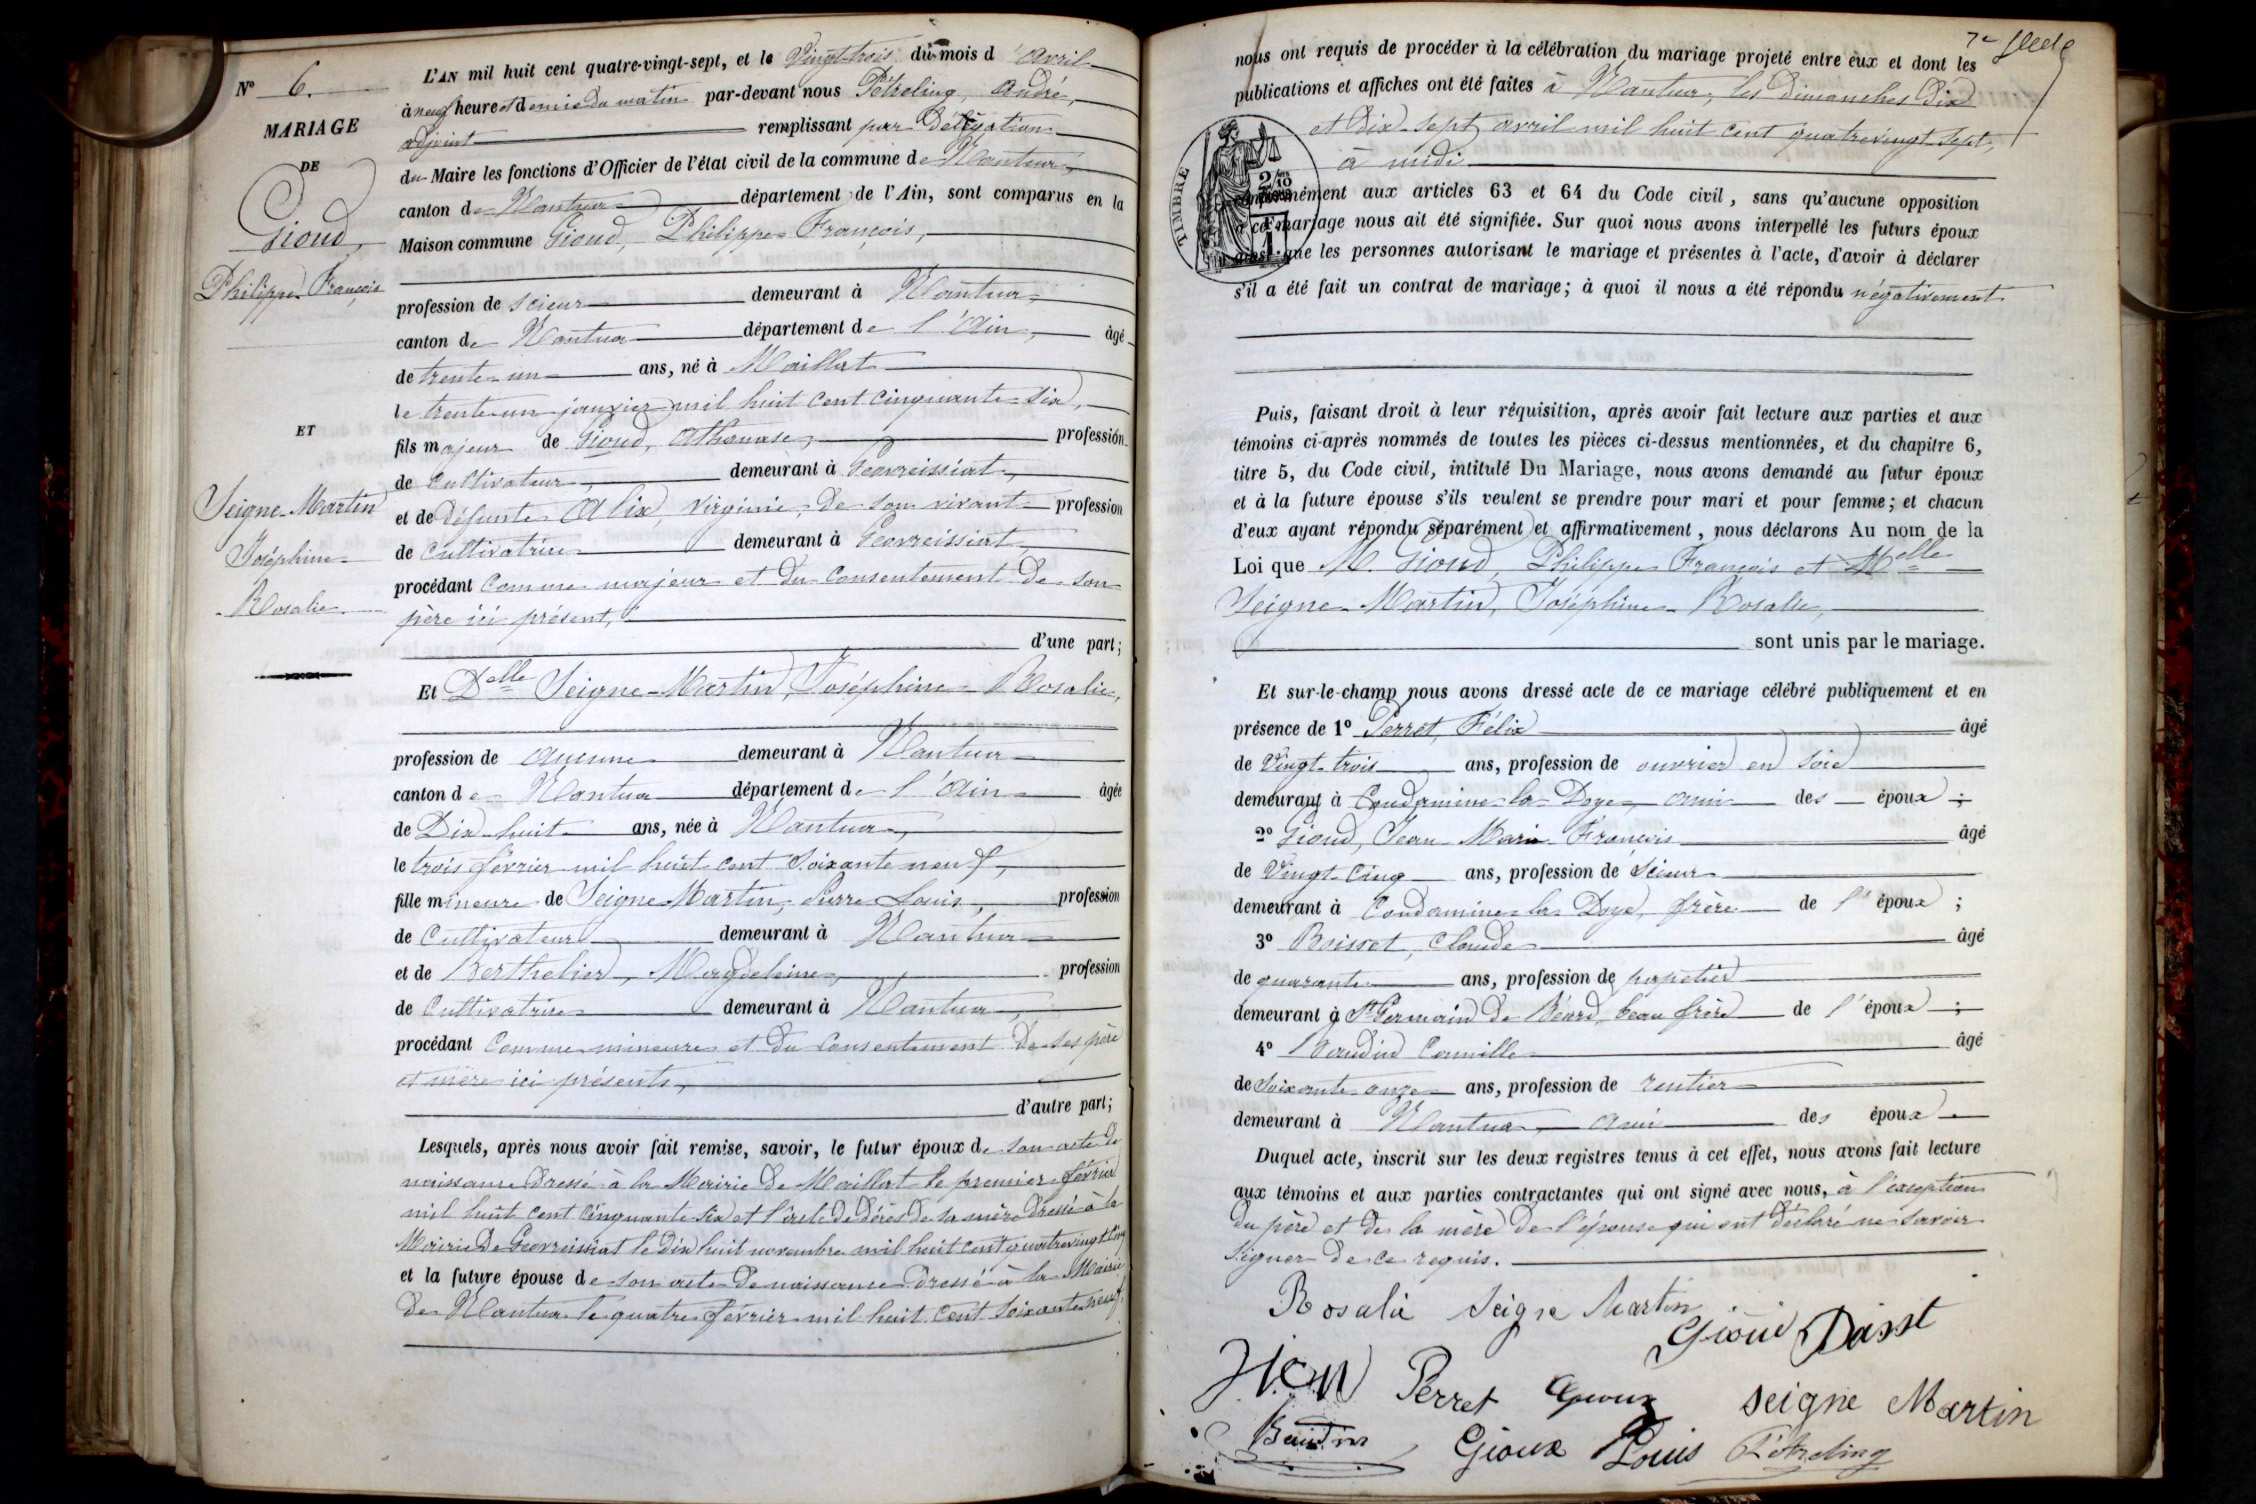 Nº 6.
MARIAGE
DE
Gioud,
Philippe François
ET
Seigne-Martin
Joséphine
Rosalie
L'AN mil huit cent quatre-vingt-sept, et le Vingt-trois du mois d'avril
à neuf heure et demie du matin par-devant nous Pétreling, André,
adjoint remplissant par délégation
du Maire les fonctions d'Officier de l'état civil de la commune de Nantua,
canton de Nantua département de l'Ain, sont comparus en la
Maison commune Gioud, Philippe François,
profession de scieur demeurant à Nantua,
canton de Nantua département de l'Ain, âgé
de trente-un ans, né à Maillat
le trente-un janvier mil huit cent cinquante-six,
fils majeur de Gioud, Athanase, profession
de Cultivateur, demeurant à Geovreissiat,
et de défunte Alix, Virginie, de son vivant profession
de Cultivatrice demeurant à Geovreissiat,
procédant comme majeur et du consentement de son
père ici présent,
d'une part;
Et Delle Seigne-Martin, Joséphine Rosalie,
profession de aucune demeurant à Nantua
canton de Nantua département de l'Ain âgée
de Dix-huit ans, née à Nantua,
le trois février mil huit cent soixante neuf,
fille mineure de Seigne Martin, Pierre Louis, profession
de Cultivateur demeurant à Nantua
et de Berthelier, Magdeleine, profession
de Cultivatrice demeurant à Nantua,
procédant comme mineure et du consentement de ses père
et mère ici présents,
d'autre part;
Lesquels, après nous avoir fait remise, savoir, le futur époux de son acte de
naissance dressé à la Mairie de Maillat le premier février
mil huit cent cinquante six et l'acte de décès de sa mère dressé à la
Mairie de Geovreissiat le dix huit novembre mil huit cent quatrevingt cinq
et la future épouse de son acte de naissance dressé à la Mairie
de Nantua le quatre février mil huit cent soixante neuf,
7e
nous ont requis de procéder à la célébration du mariage projeté entre eux et dont les
publications et affiches ont été faites à Nantua, les dimanches dix
et dix-sept avril mil huit cent quatrevingt sept,
à midi
TIMBRE
conformément aux articles 63 et 64 du Code civil, sans qu'aucune opposition
à ce mariage nous ait été signifiée. Sur quoi nous avons interpellé les futurs époux
ainsi que les personnes autorisant le mariage et présentes à l'acte, d'avoir à déclarer
s'il a été fait un contrat de mariage; à quoi il nous a été répondu négativement
Puis, faisant droit à leur réquisition, après avoir fait lecture aux parties et aux
témoins ci-après nommés de toutes les pièces ci-dessus mentionnées, et du chapitre 6,
titre 5, du Code civil, intitulé Du Mariage, nous avons demandé au futur époux
et à la future épouse s'ils veulent se prendre pour mari et pour femme; et chacun
d'eux ayant répondu séparément et affirmativement, nous déclarons Au nom de la
Loi que M. Gioud, Philippe François et Melle
Seigne-Martin, Joséphine Rosalie,
sont unis par le mariage.
Et sur-le-champ nous avons dressé acte de ce mariage célébré publiquement et en
présence de 1º Perret, Félix âgé
de Vingt-trois ans, profession de ouvrier en soie
demeurant à Condamine-la-Doye, ami des époux;
2º Gioud, Jean Marie François âgé
de Vingt-Cinq ans, profession de Scieur
demeurant à Condamine la Doye, frère de l'époux;
3º Boisset, Claude âgé
de quarante ans, profession de papetier
demeurant à St Germain de Béard, beau frère de l'époux;
4º Baudin Camille âgé
de soixante onze ans, profession de rentier
demeurant à Nantua, ami des époux
Duquel acte, inscrit sur les deux registres tenus à cet effet, nous avons fait lecture
aux témoins et aux parties contractantes qui ont signé avec nous, à l'exception
du père et de la mère de l'épouse qui ont déclaré ne savoir
signer de ce requis.
Rosalie Seigne Martin
Perret Seigne Martin
Baudin Gioux Louis Pétreling